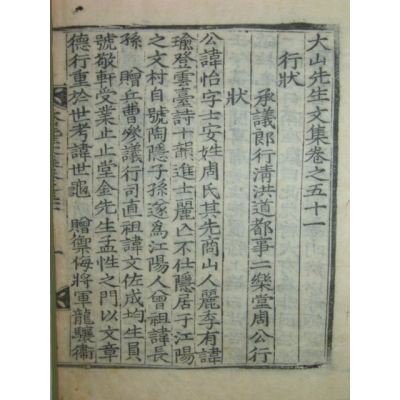 大山先生文集卷之五十一
行狀
承議郎行清洪道都事二樂堂周公行
狀
公諱怡字士安姓周氏其先商山人麗季有諱
瑜登雲臺詩十韻進士麗亾不仕隱居于江陽
之文村自號陶隱子孫遂爲江陽人曾祖諱長
孫 贈兵曹叅議行司直祖諱文佐成均生員
號敬軒受業止止堂金先生孟性之門以文章
德行重於世考諱世龜 贈禦侮將軍龍驤衛